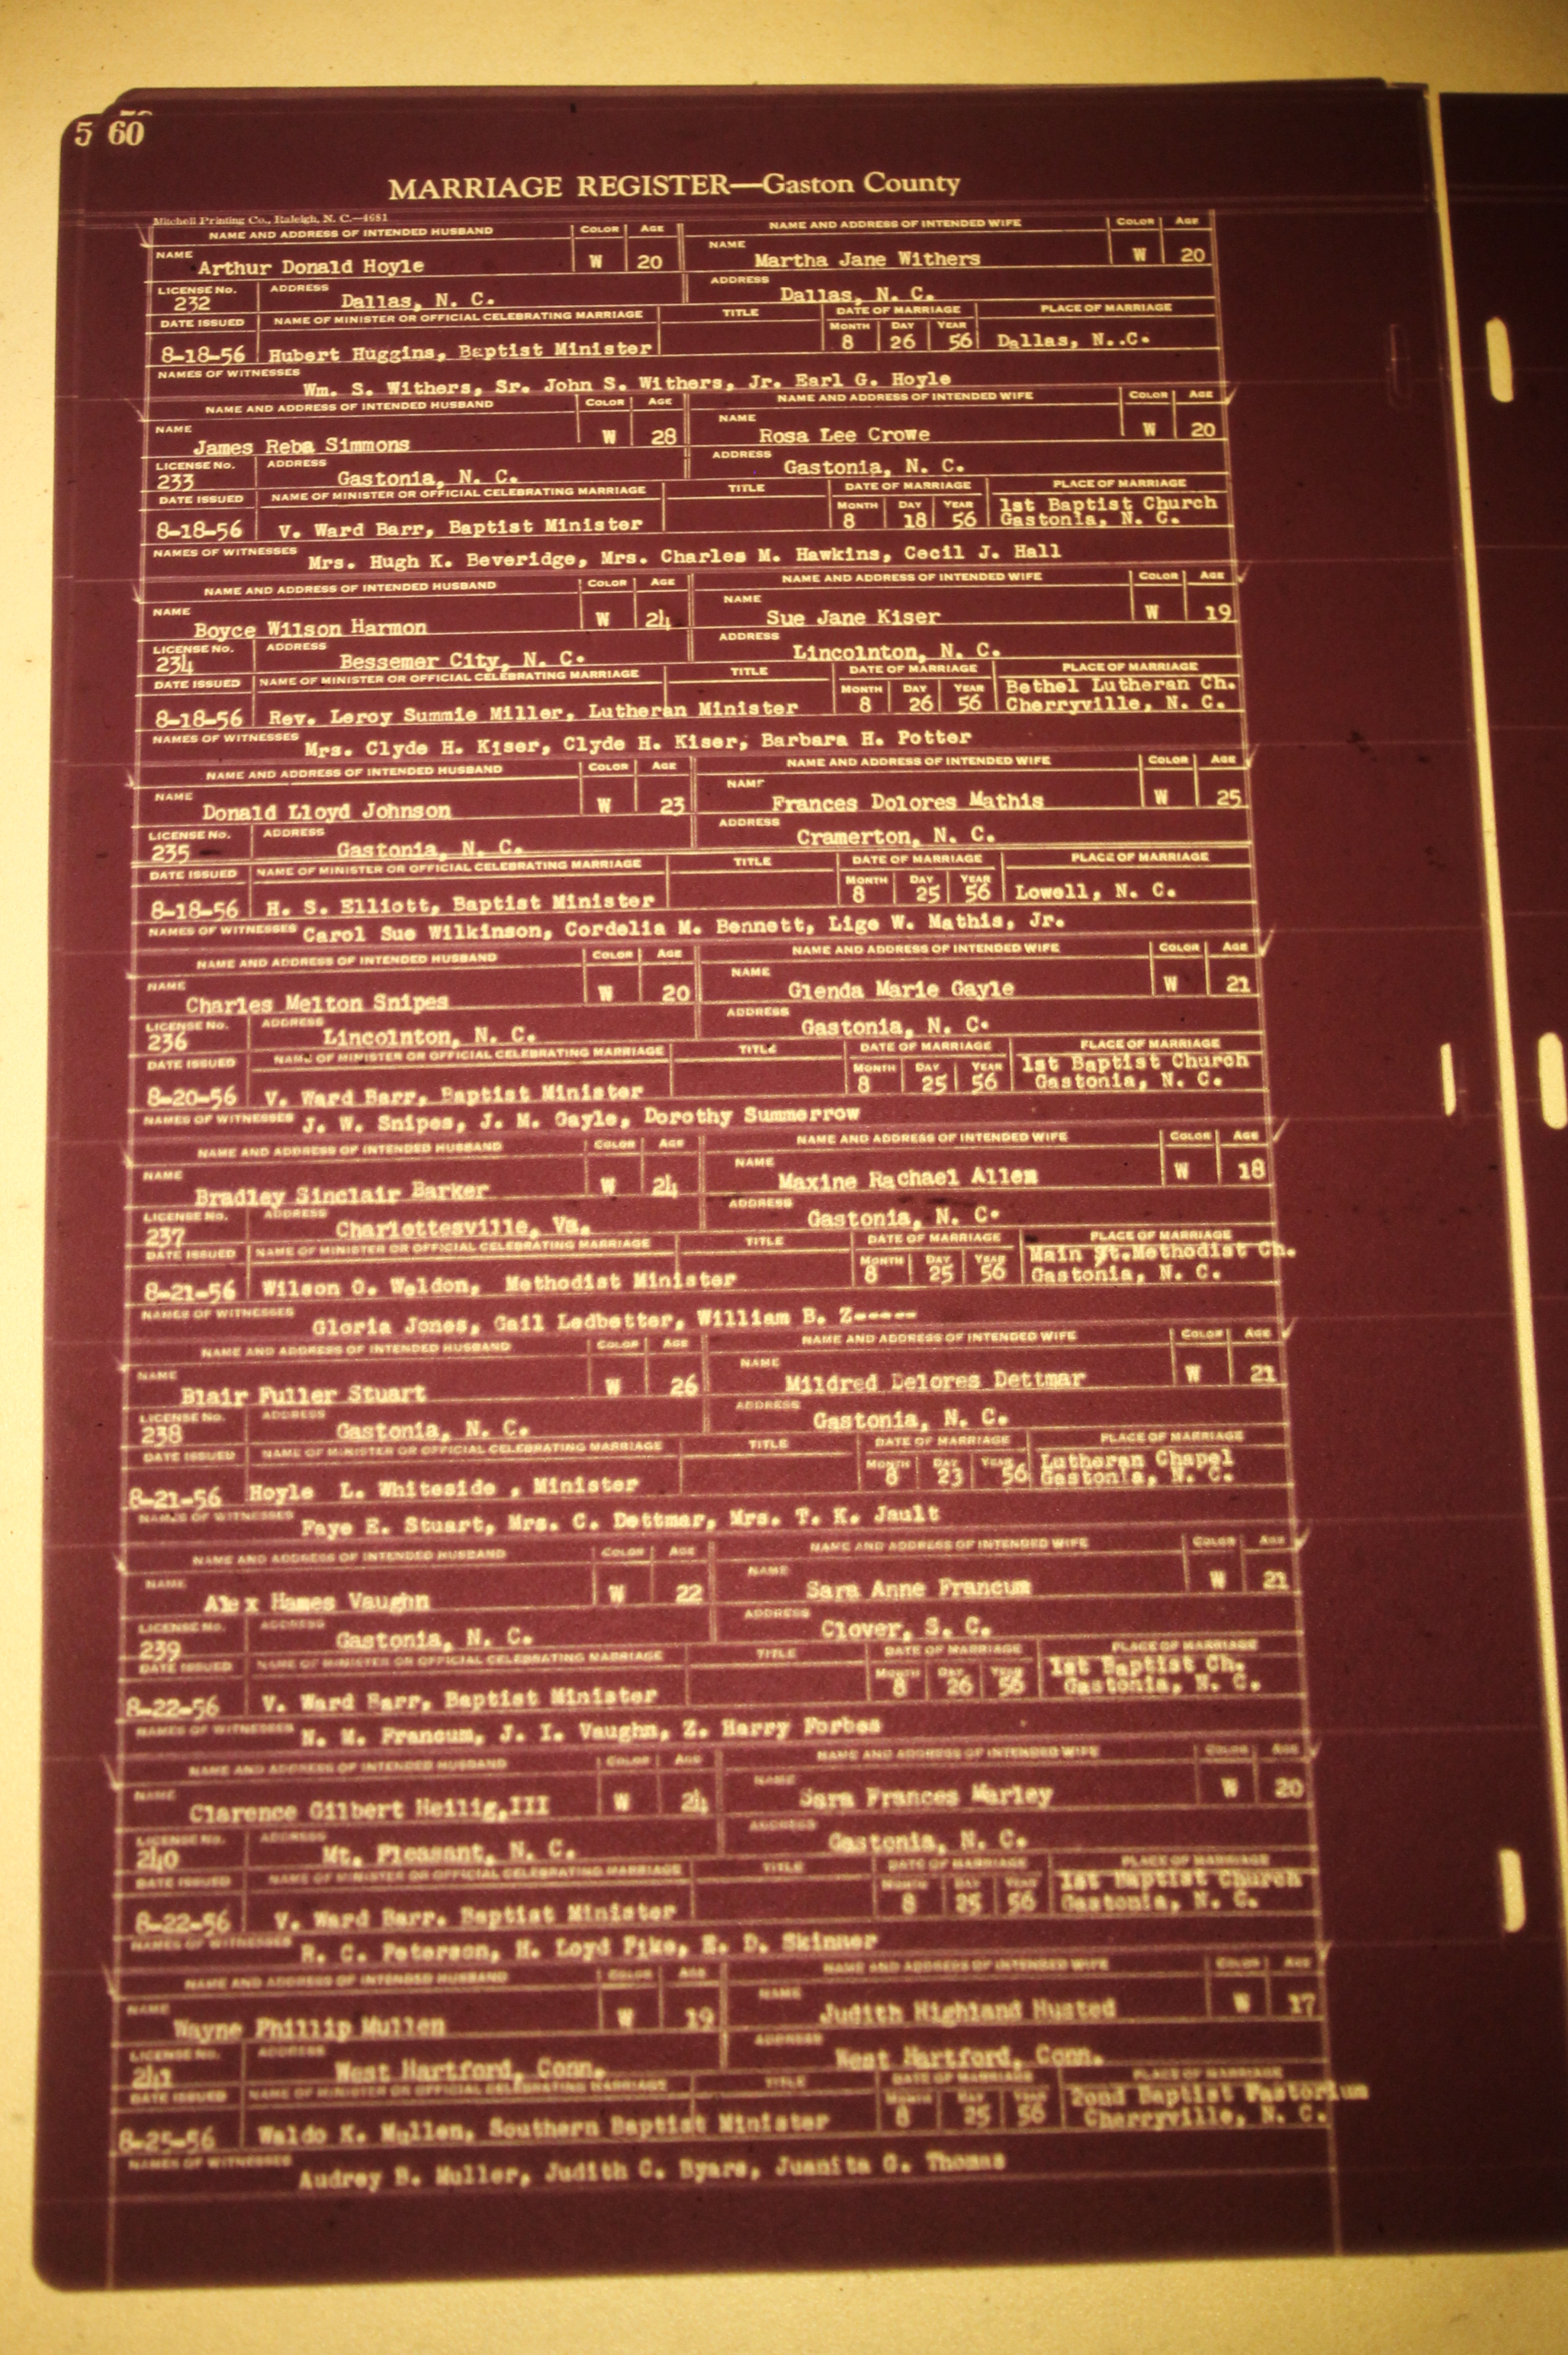 5 60
MARRIAGE REGISTER—Gaston County
Mitchell Printing Co., Raleigh, N. C.—4681
NAME AND ADDRESS OF INTENDED HUSBAND COLOR AGE NAME AND ADDRESS OF INTENDED WIFE COLOR AGE
NAME Arthur Donald Hoyle W 20 NAME Martha Jane Withers W 20
LICENSE No. 232 ADDRESS Dallas, N. C. ADDRESS Dallas, N. C.
DATE ISSUED NAME OF MINISTER OR OFFICIAL CELEBRATING MARRIAGE TITLE DATE OF MARRIAGE PLACE OF MARRIAGE
MONTH DAY YEAR
8-18-56 Hubert Huggins, Baptist Minister 8 26 56 Dallas, N..C.
NAMES OF WITNESSES Wm. S. Withers, Sr. John S. Withers, Jr. Earl G. Hoyle
NAME AND ADDRESS OF INTENDED HUSBAND COLOR AGE NAME AND ADDRESS OF INTENDED WIFE COLOR AGE
NAME James Reba Simmons W 28 NAME Rosa Lee Crowe W 20
LICENSE No. 233 ADDRESS Gastonia, N. C. ADDRESS Gastonia, N. C.
DATE ISSUED NAME OF MINISTER OR OFFICIAL CELEBRATING MARRIAGE TITLE DATE OF MARRIAGE PLACE OF MARRIAGE
MONTH DAY YEAR 1st Baptist Church
8-18-56 V. Ward Barr, Baptist Minister 8 18 56 Gastonia, N. C.
NAMES OF WITNESSES Mrs. Hugh K. Beveridge, Mrs. Charles M. Hawkins, Cecil J. Hall
NAME AND ADDRESS OF INTENDED HUSBAND COLOR AGE NAME AND ADDRESS OF INTENDED WIFE COLOR AGE
NAME Boyce Wilson Harmon W 24 NAME Sue Jane Kiser W 19
LICENSE No. 234 ADDRESS Bessemer City, N. C. ADDRESS Lincolnton, N. C.
DATE ISSUED NAME OF MINISTER OR OFFICIAL CELEBRATING MARRIAGE TITLE DATE OF MARRIAGE PLACE OF MARRIAGE
MONTH DAY YEAR Bethel Lutheran Ch.
8-18-56 Rev. Leroy Summie Miller, Lutheran Minister 8 26 56 Cherryville, N. C.
NAMES OF WITNESSES Mrs. Clyde H. Kiser, Clyde H. Kiser, Barbara H. Potter
NAME AND ADDRESS OF INTENDED HUSBAND COLOR AGE NAME AND ADDRESS OF INTENDED WIFE COLOR AGE
NAME Donald Lloyd Johnson W 23 NAME Frances Dolores Mathis W 25
LICENSE No. 235 ADDRESS Gastonia, N. C. ADDRESS Cramerton, N. C.
DATE ISSUED NAME OF MINISTER OR OFFICIAL CELEBRATING MARRIAGE TITLE DATE OF MARRIAGE PLACE OF MARRIAGE
MONTH DAY YEAR
8-18-56 H. S. Elliott, Baptist Minister 8 25 56 Lowell, N. C.
NAMES OF WITNESSES Carol Sue Wilkinson, Cordelia M. Bennett, Lige W. Mathis, Jr.
NAME AND ADDRESS OF INTENDED HUSBAND COLOR AGE NAME AND ADDRESS OF INTENDED WIFE COLOR AGE
NAME Charles Melton Snipes W 20 NAME Glenda Marie Gayle W 21
LICENSE No. 236 ADDRESS Lincolnton, N. C. ADDRESS Gastonia, N. C.
DATE ISSUED NAME OF MINISTER OR OFFICIAL CELEBRATING MARRIAGE TITLE DATE OF MARRIAGE PLACE OF MARRIAGE
MONTH DAY YEAR 1st Baptist Church
8-20-56 V. Ward Barr, Baptist Minister 8 25 56 Gastonia, N. C.
NAMES OF WITNESSES J. W. Snipes, J. M. Gayle, Dorothy Summerrow
NAME AND ADDRESS OF INTENDED HUSBAND COLOR AGE NAME AND ADDRESS OF INTENDED WIFE COLOR AGE
NAME Bradley Sinclair Barker W 24 NAME Maxine Rachael Allen W 18
LICENSE No. 237 ADDRESS Charlottesville, Va. ADDRESS Gastonia, N. C.
DATE ISSUED NAME OF MINISTER OR OFFICIAL CELEBRATING MARRIAGE TITLE DATE OF MARRIAGE PLACE OF MARRIAGE
MONTH DAY YEAR Main St.Methodist Ch.
8-21-56 Wilson O. Weldon, Methodist Minister 8 25 56 Gastonia, N. C.
NAMES OF WITNESSES Gloria Jones, Gail Ledbetter, William B. Z-----
NAME AND ADDRESS OF INTENDED HUSBAND COLOR AGE NAME AND ADDRESS OF INTENDED WIFE COLOR AGE
NAME Blair Fuller Stuart W 26 NAME Mildred Delores Dettmar W 21
LICENSE No. 238 ADDRESS Gastonia, N. C. ADDRESS Gastonia, N. C.
DATE ISSUED NAME OF MINISTER OR OFFICIAL CELEBRATING MARRIAGE TITLE DATE OF MARRIAGE PLACE OF MARRIAGE
MONTH DAY YEAR Lutheran Chapel
8-21-56 Hoyle L. Whiteside , Minister 8 23 56 Gastonia, N. C.
NAMES OF WITNESSES Faye E. Stuart, Mrs. C. Dettmar, Mrs. T. K. Jault
NAME AND ADDRESS OF INTENDED HUSBAND COLOR AGE NAME AND ADDRESS OF INTENDED WIFE COLOR AGE
NAME Alex Hames Vaughn W 22 NAME Sara Anne Francum W 21
LICENSE No. 239 ADDRESS Gastonia, N. C. ADDRESS Clover, S. C.
DATE ISSUED NAME OF MINISTER OR OFFICIAL CELEBRATING MARRIAGE TITLE DATE OF MARRIAGE PLACE OF MARRIAGE
MONTH DAY YEAR 1st Baptist Ch.
8-22-56 V. Ward Barr, Baptist Minister 8 26 56 Gastonia, N. C.
NAMES OF WITNESSES N. M. Francum, J. I. Vaughn, Z. Harry Forbes
NAME AND ADDRESS OF INTENDED HUSBAND COLOR AGE NAME AND ADDRESS OF INTENDED WIFE COLOR AGE
NAME Clarence Gilbert Heilig,III W 24 NAME Sara Frances Marley W 20
LICENSE No. 240 ADDRESS Mt. Pleasant, N. C. ADDRESS Gastonia, N. C.
DATE ISSUED NAME OF MINISTER OR OFFICIAL CELEBRATING MARRIAGE TITLE DATE OF MARRIAGE PLACE OF MARRIAGE
MONTH DAY YEAR 1st Baptist Church
8-22-56 V. Ward Barr. Baptist Minister 8 25 56 Gastonia, N. C.
NAMES OF WITNESSES R. C. Peterson, H. Loyd Pike, E. D. Skinner
NAME AND ADDRESS OF INTENDED HUSBAND COLOR AGE NAME AND ADDRESS OF INTENDED WIFE COLOR AGE
NAME Wayne Phillip Mullen W 19 NAME Judith Highland Husted W 17
LICENSE No. 241 ADDRESS West Hartford, Conn. ADDRESS West Hartford, Conn.
DATE ISSUED NAME OF MINISTER OR OFFICIAL CELEBRATING MARRIAGE TITLE DATE OF MARRIAGE PLACE OF MARRIAGE
MONTH DAY YEAR 2ond Baptist Pastorium
8-25-56 Waldo K. Mullen, Southern Baptist Minister 8 25 56 Cherryville, N. C.
NAMES OF WITNESSES Audrey B. Muller, Judith C. Byars, Juanita G. Thomas